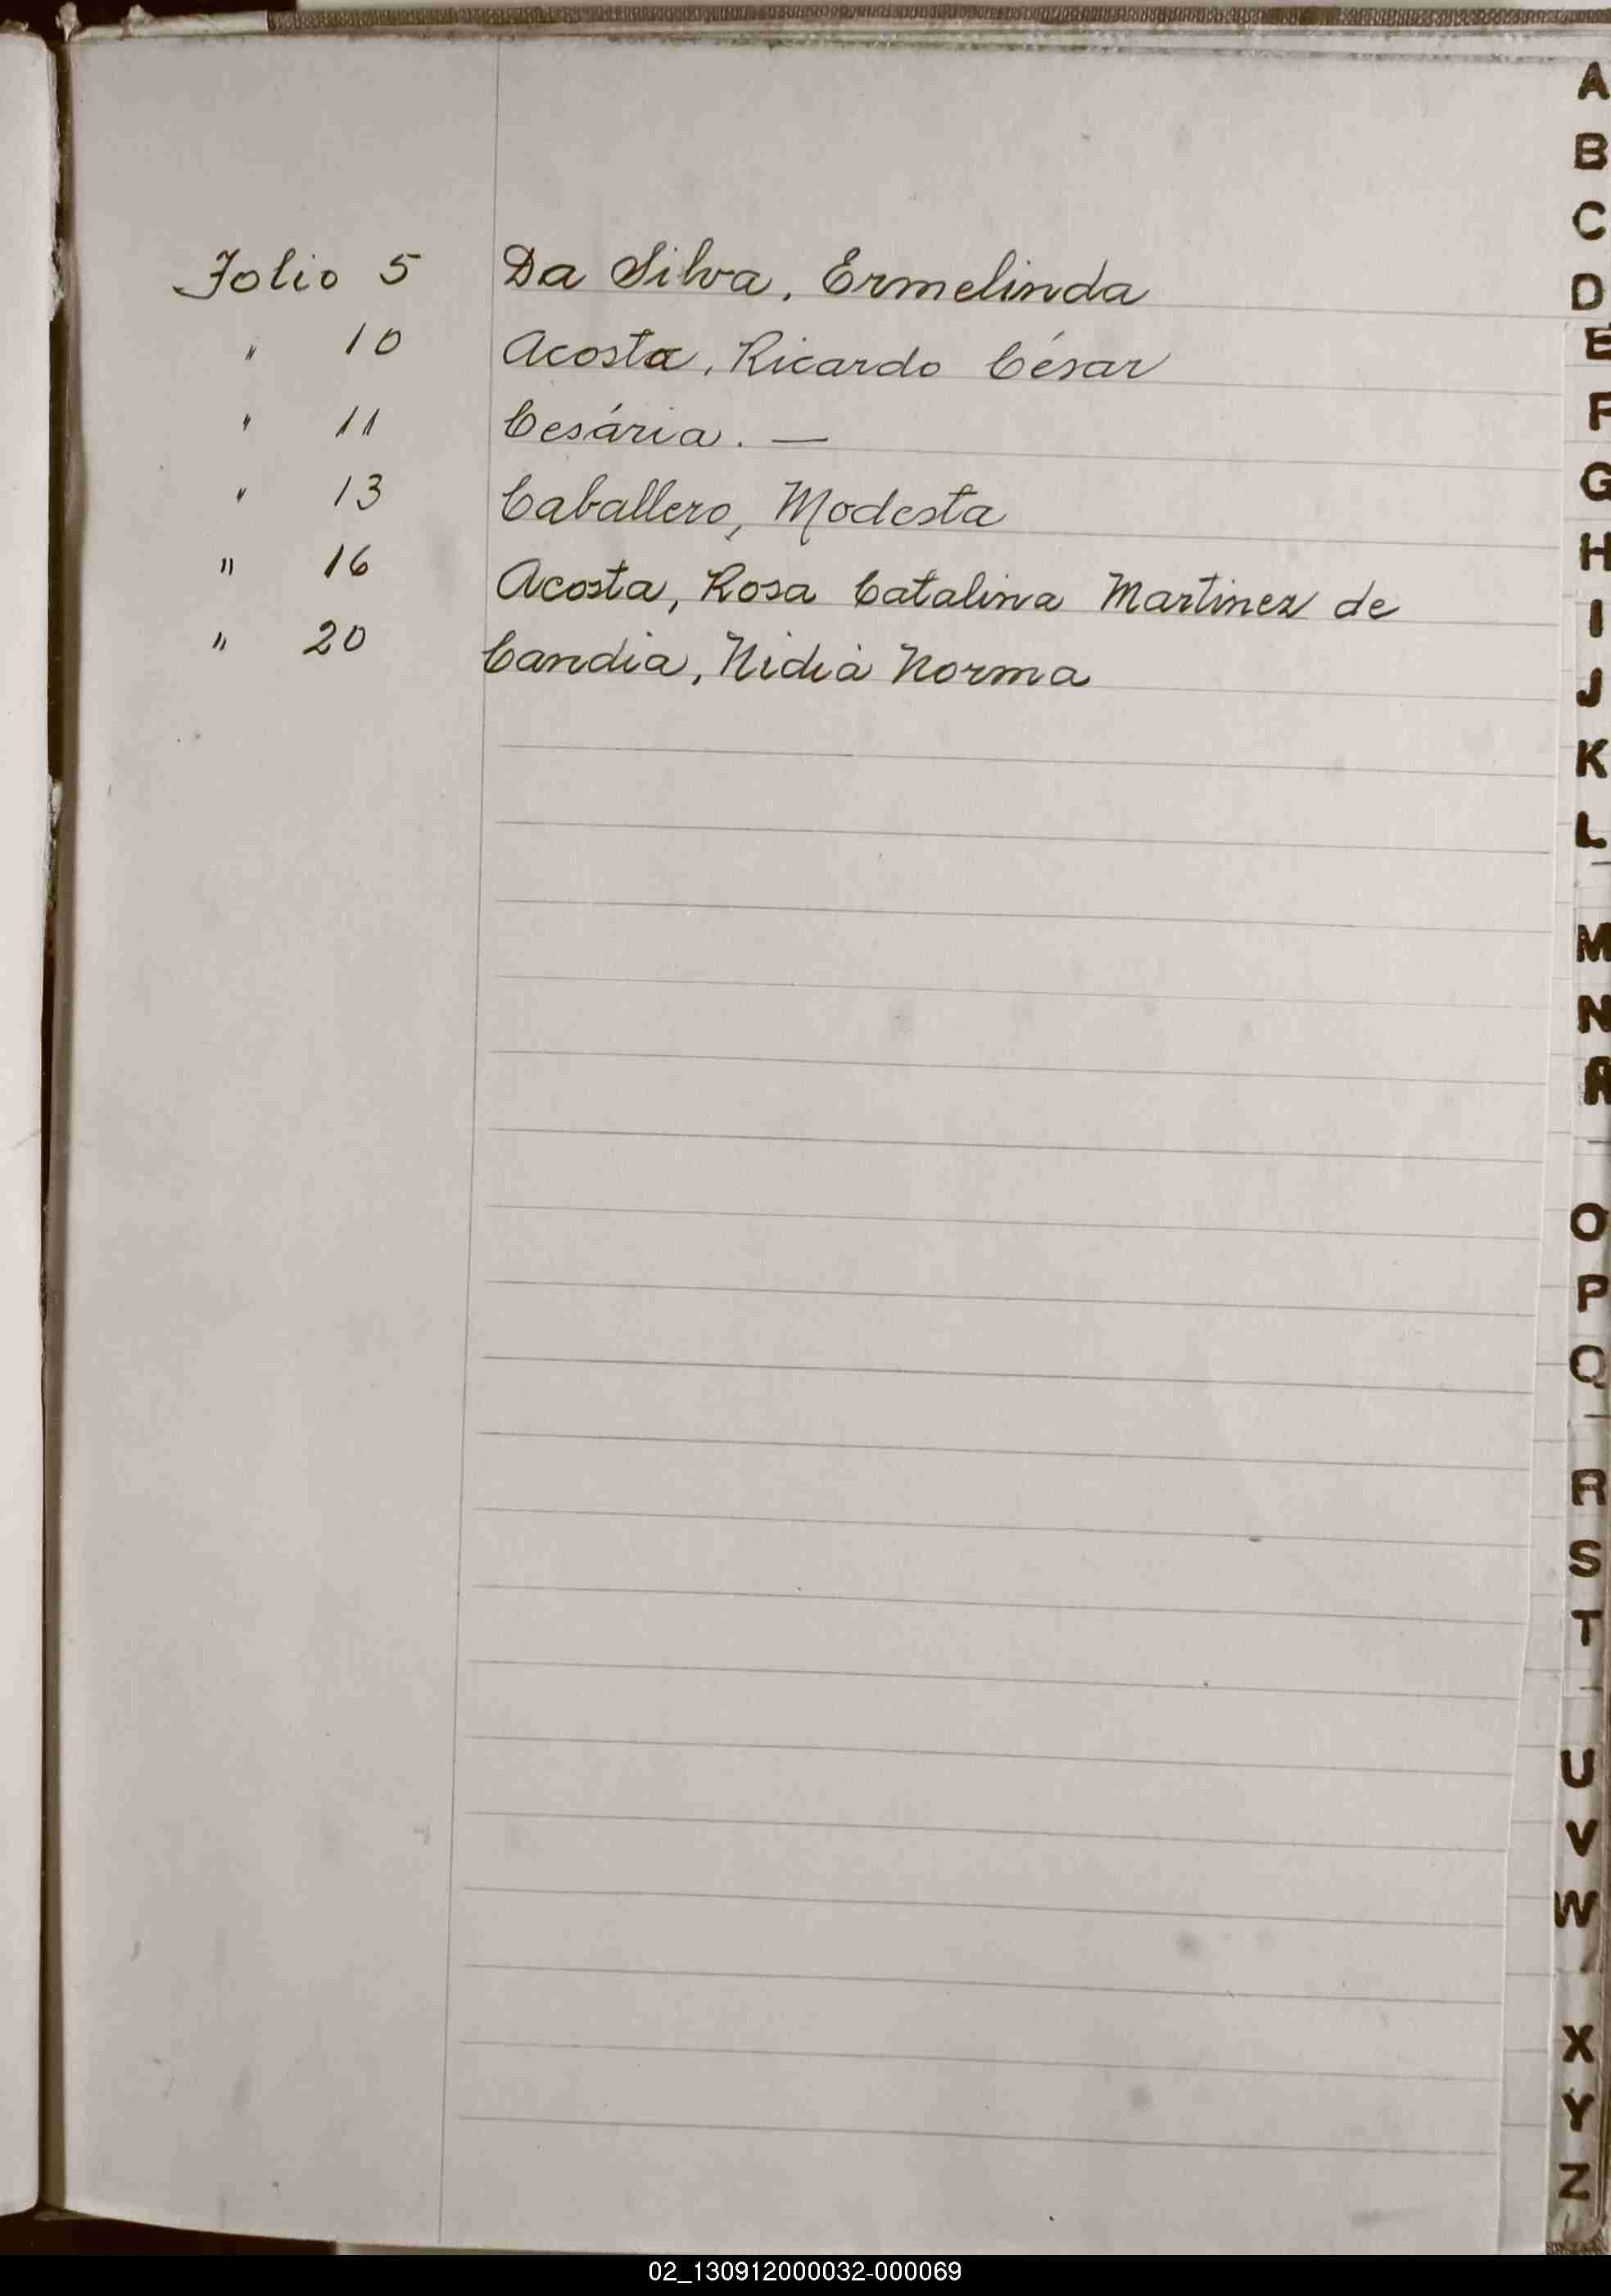 Folio 5 Da Silva, Ermelinda
" 10 Acosta, Ricardo César
" 11 Cesária. —
" 13 Caballero, Modesta
" 16 Acosta, Rosa Catalina Martinez de
" 20 Candia, Nidia Norma
A
B
C
D
E
F
G
H
I
J
K
L
M
N
O
P
Q
R
S
T
U
V
W
X
Y
Z
02_130912000032-000069